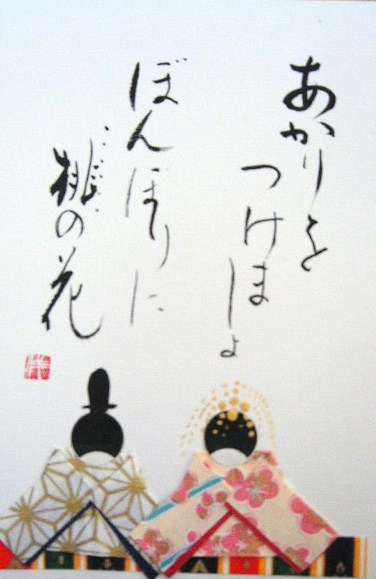 あかりを
つけましょ
ぼんぼりに
桃の花